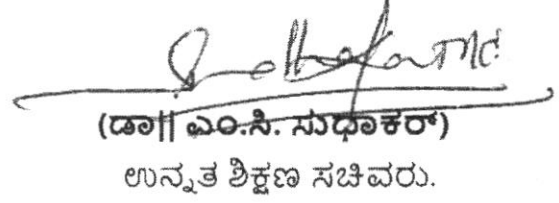 (ಡಾ|| ಎಂ.ಸಿ. ಸುಧಾಕರ್)
ಉನ್ನತ ಶಿಕ್ಷಣ ಸಚಿವರು.